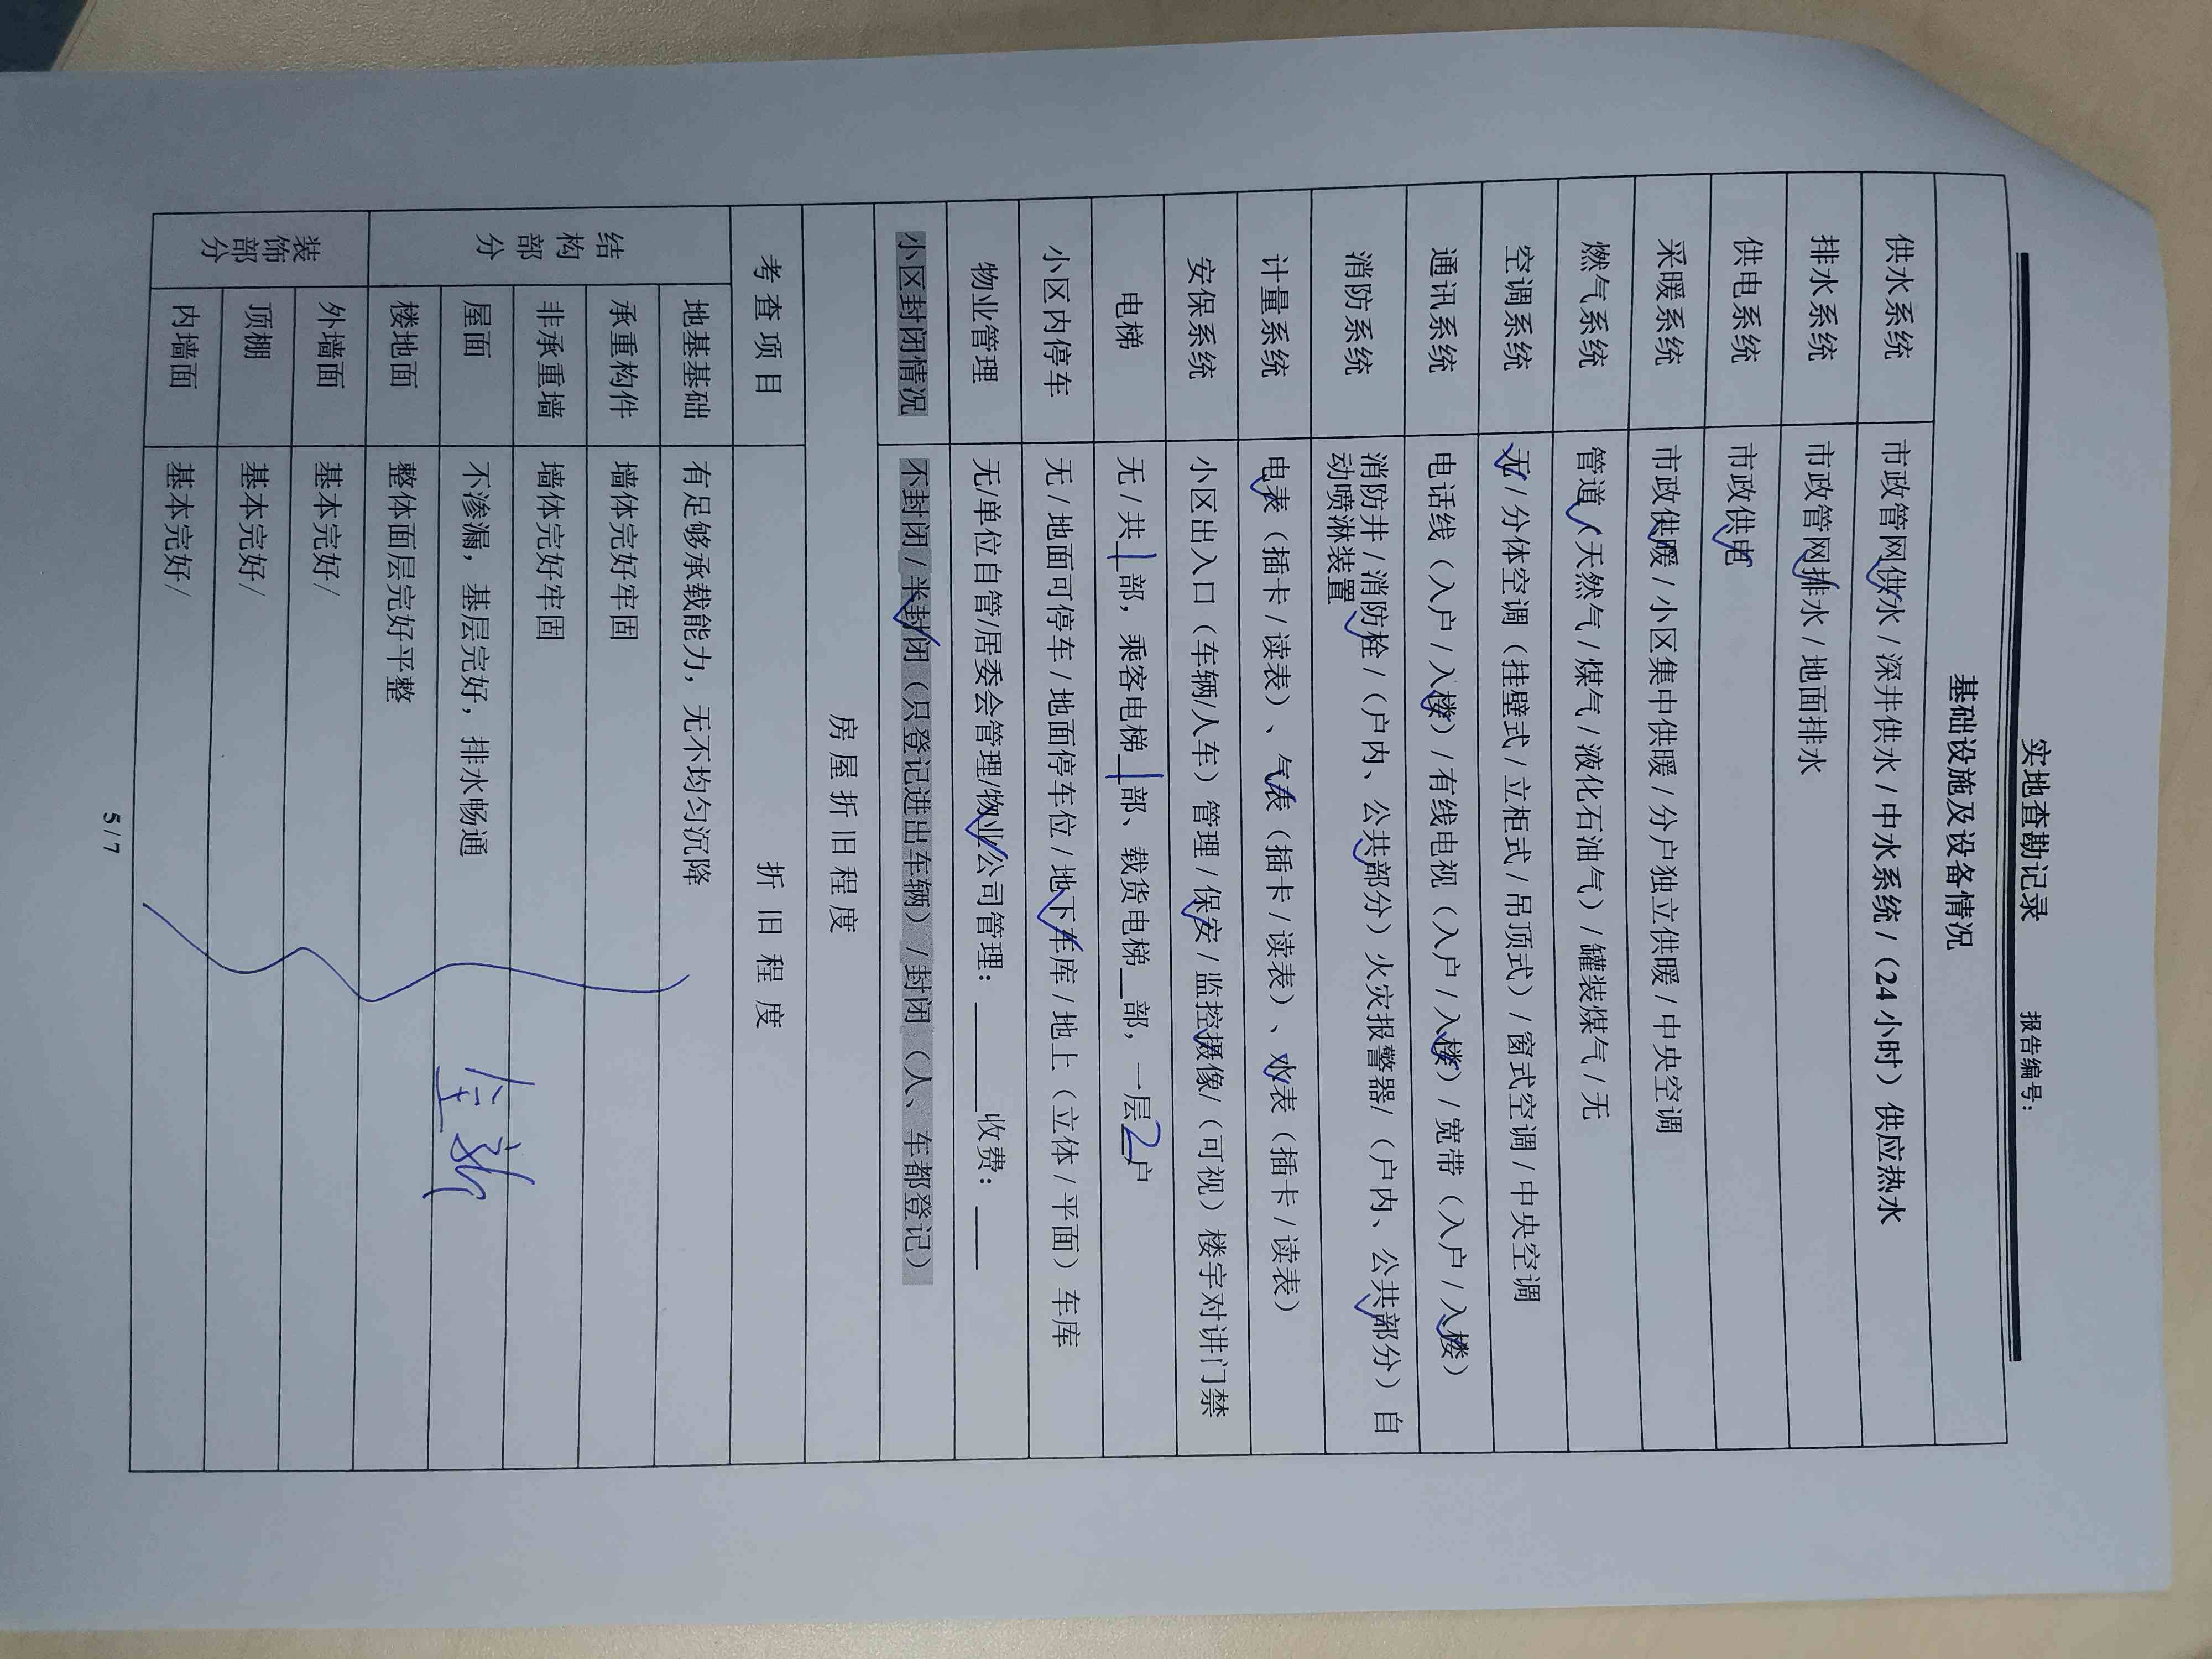 实地查勘记录 报告编号：
基础设施及设备情况
供水系统 市政管网供水 / 深井供水 / 中水系统 /（24 小时）供应热水
排水系统 市政管网排水 / 地面排水
供电系统 市政供电
采暖系统 市政供暖 / 小区集中供暖 / 分户独立供暖 / 中央空调
燃气系统 管道（天然气 / 煤气 / 液化石油气）/ 罐装煤气 / 无
空调系统 无 / 分体空调（挂壁式 / 立柜式 / 吊顶式）/ 窗式空调 / 中央空调
通讯系统 电话线（入户 / 入楼）/ 有线电视（入户 / 入楼）/ 宽带（入户 / 入楼）
消防系统 消防井 / 消防栓 /（户内、公共部分）火灾报警器/（户内、公共部分）自
动喷淋装置
计量系统 电表（插卡 / 读表）、气表（插卡 / 读表）、水表（插卡 / 读表）
安保系统 小区出入口（车辆/人车）管理 / 保安 / 监控摄像/（可视）楼宇对讲门禁
电梯 无 / 共 1 部，乘客电梯 1 部、载货电梯__部，一层 2 户
小区内停车 无 / 地面可停车 / 地面停车位 / 地下车库 / 地上（立体 / 平面）车库
物业管理 无/单位自管/居委会管理/物业公司管理：______收费：___
小区封闭情况 不封闭 / 半封闭（只登记进出车辆）/ 封闭（人、车都登记）
房屋折旧程度
考查项目 折旧程度
结构部分 地基基础 有足够承载能力，无不均匀沉降
承重构件 墙体完好牢固
非承重墙 墙体完好牢固
屋面 不渗漏，基层完好，排水畅通
楼地面 整体面层完好平整
全新
装饰部分 外墙面 基本完好/
顶棚 基本完好/
内墙面 基本完好/
5 / 7